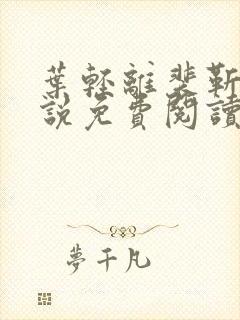 葉輕離裴靳
說免費閱讀
夢千凡